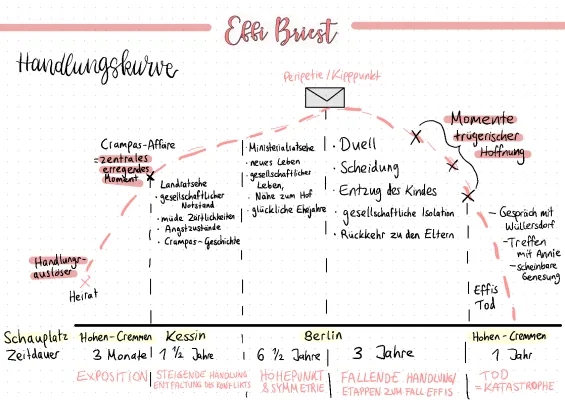 Effi Briest
Handlungskurve
Peripetie/Kipppunkt
Crampas-Affäre
=zentrales
erregendes
Moment
Landratsehe
· gesellschaftlicher
Notstand
· müde Zärtlichkeiten
· Angstzustände
· Crampas-Geschichte
· Ministerialratsehe
· neues Leben
· gesellschaftlicher
Leben,
Nähe zum Hof
· glückliche Ehejahre
· Duell
· Scheidung
· Entzug des Kindes
· gesellschaftliche Isolation
· Rückkehr zu den Eltern
Momente
trügerischer
Hoffnung
- Gespräch mit
Wüllersdorf
- Treffen
mit Annie
- scheinbare
Genesung
Handlungs-
auslöser
Heirat
Effis
Tod
Schauplatz Hohen-Cremmen Kessin Berlin Hohen-Cremmen
Zeitdauer 3 Monate 1 1/2 Jahre 6 1/2 Jahre 3 Jahre 1 Jahr
EXPOSITION
STEIGENDE HANDLUNG
ENTFALTUNG DES KONFLIKTS
HÖHEPUNKT
& SYMMETRIE
FALLENDE HANDLUNG/
ETAPPEN ZUM FALL EFFIS
TOD
=KATASTROPHE